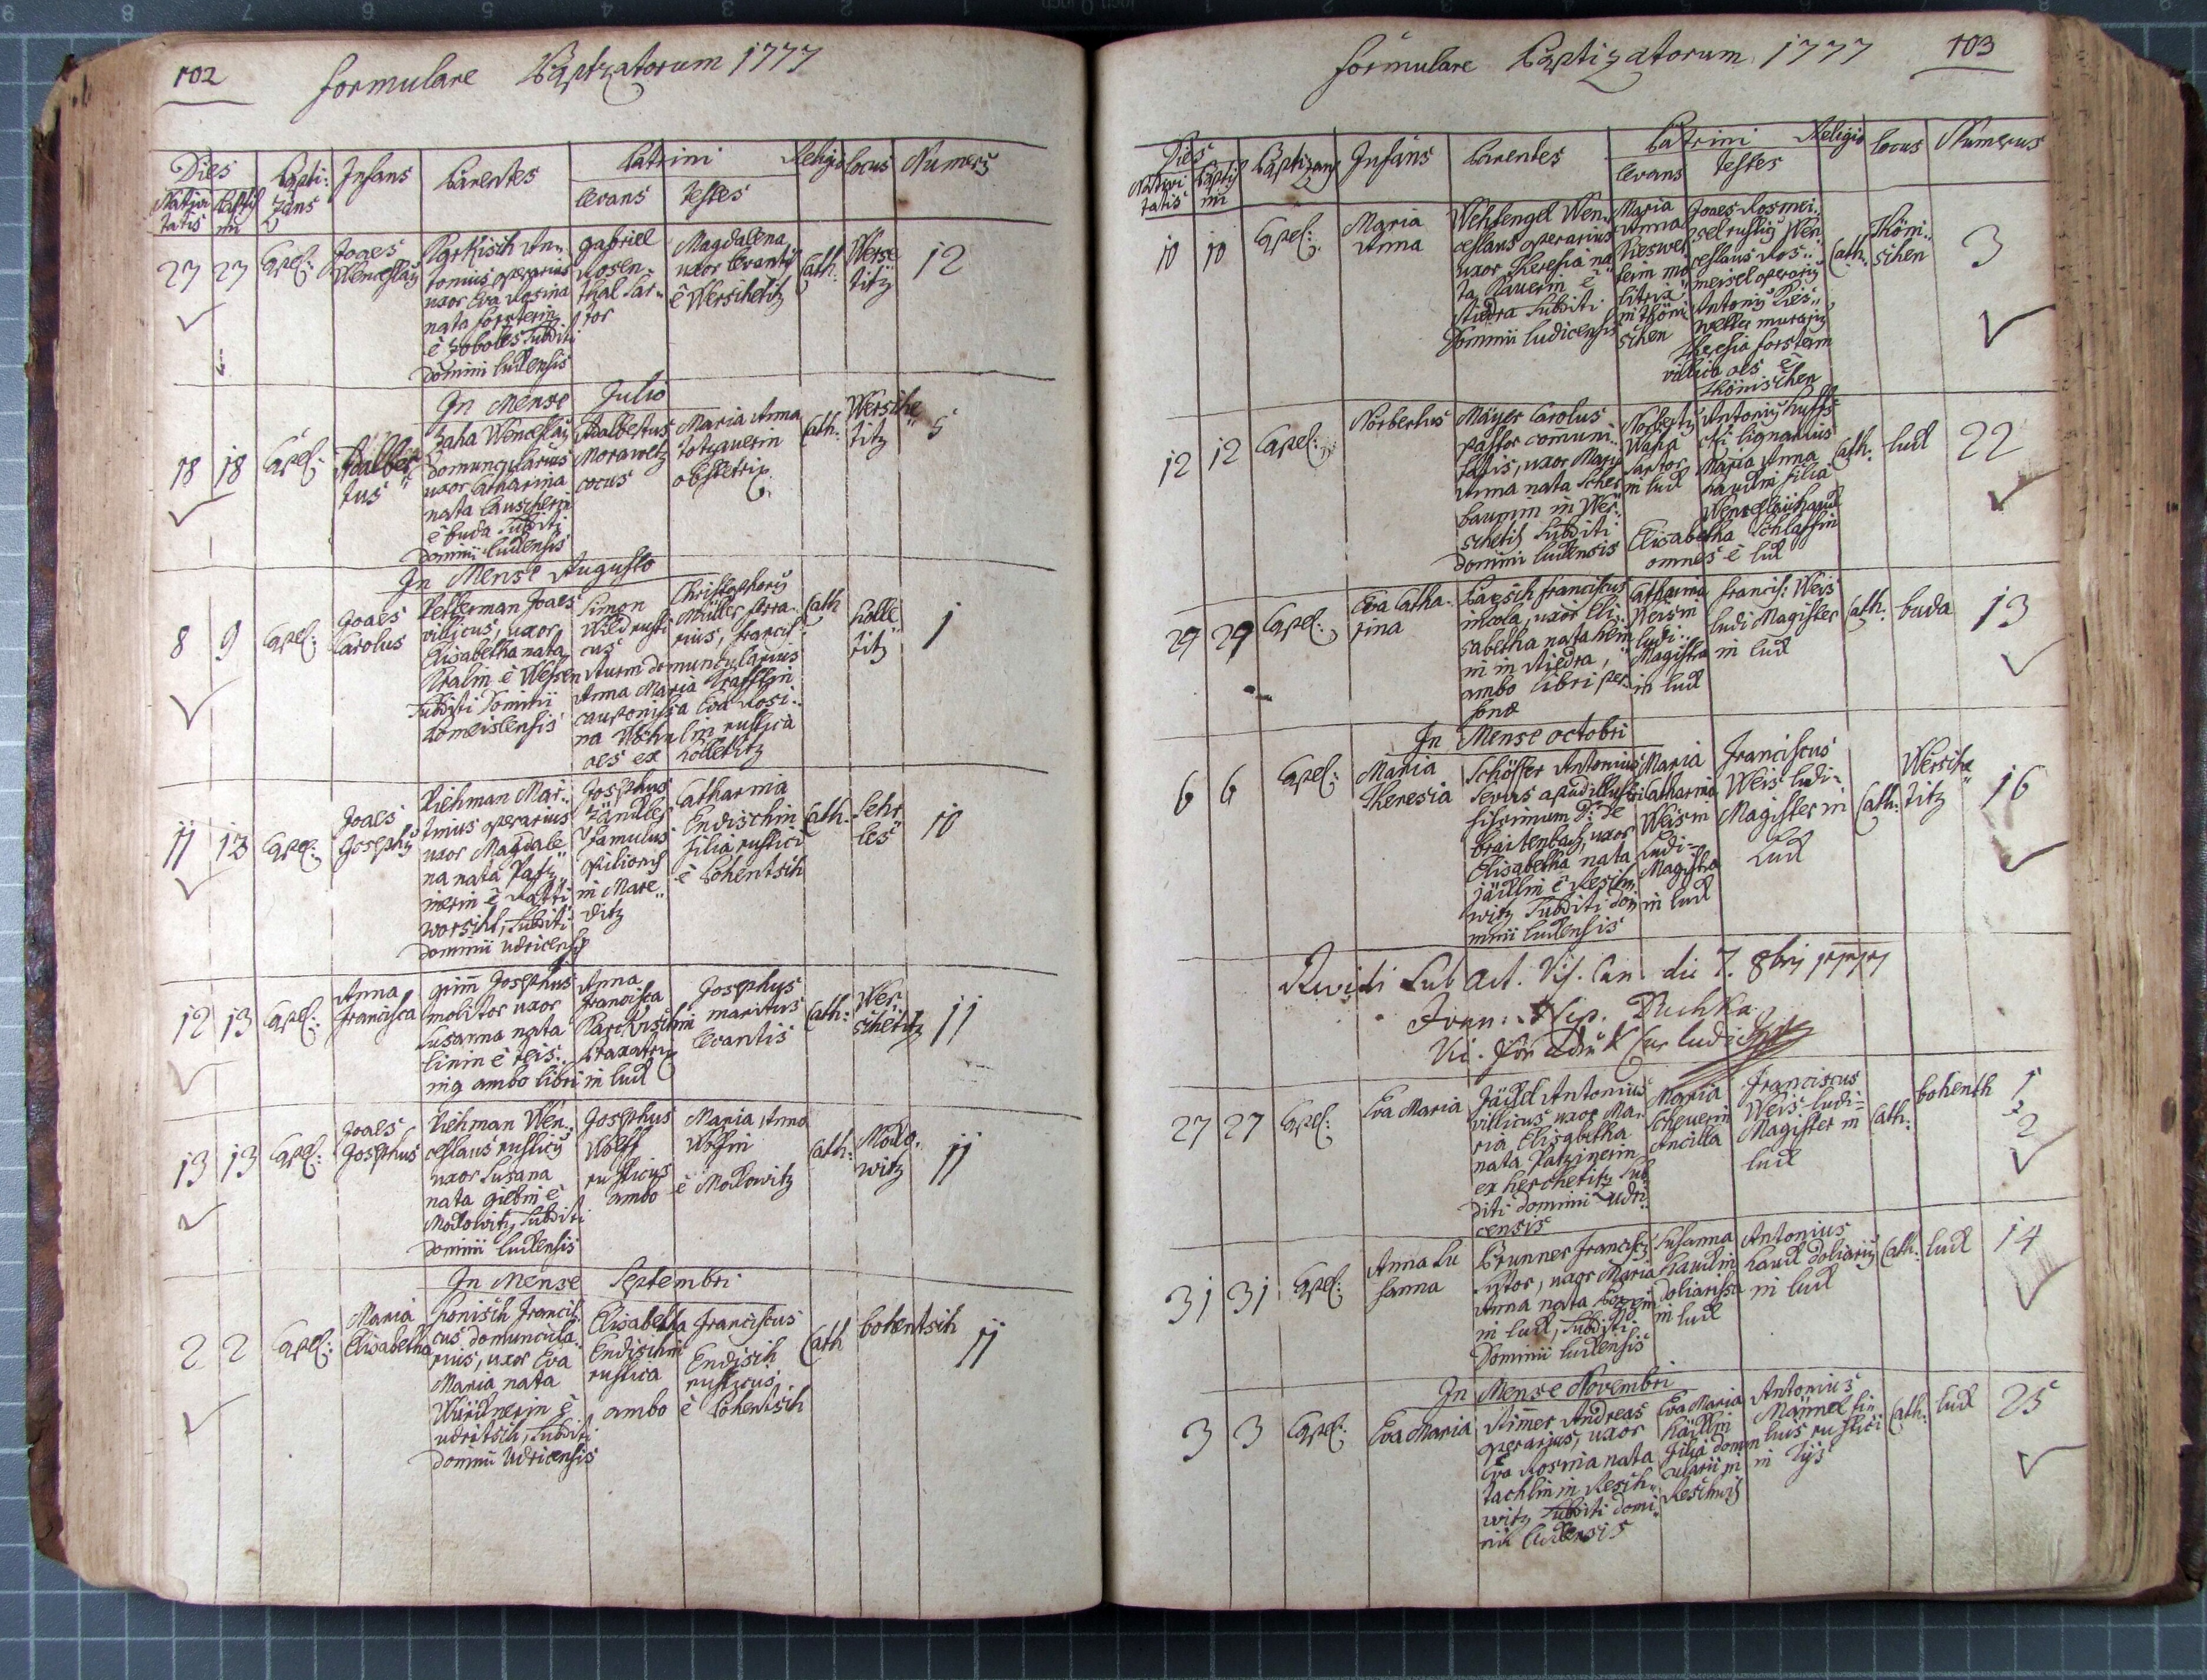 102
formulare Baptizatorum 1777
Dies
Nativi
tatis
Baptis
mi
Bapti:
zans
Infans
Parentes
Patrini
Levans
Testes
Religio
Locus
Numerꝰ
27
27
Capel:
Joaes
Wenceslaꝰ
Karkisch An„
tonius operarius
uxor Eva Rosina
nata forsterin
è Zoboles Subditi
Domini ludensis
Gabriel
Rosen„
thal Sar„
tor
Magdalena
uxor levantis
è Werschetitz
Cath:
Wersc
titz
12
In Mense Julio
18
18
Capel:
Adalber
tus
Zaha Wenceslaꝰ
domuncularius
uxor Catharina
nata Lauscherin
è buda Subditi
Dominii ludensis
Adalbertus
Morawetz
cocus
Maria Anna
obstetrix
Cath:
Wersche
titz
5
In Mense Augusto
8
9
Capel:
Joaes
Carolus
Petterman Joaes
villicus, uxor
Elisabetha nata
Kralin è Wessen
Subditi Dominii
Lomeislensis
Simon
Wild rusti
cus
Christophorꝰ
Müller serra
rius, francis:
Sturm domuncularius
Anna Maria
caupanissa Eva Rosi:
na rustica
oes ex Kolletitz
Cath
Kolle
titz
1
11
12
Capel:
Joaes
Josephꝰ
Richman Mar:
tinus operarius
uxor Magdale
na nata Patz„
inerin è Ratti
worschit, Subditi
dominii udricensis
Josephus
Zändler
famulus
opilionis
in Mare„
ditz
Catharina
Endischin
filia rustici
è Bohentsch
Cath.
Sehr
les
10
12
13
Capel:
Anna
Francisca
Grim̄ Josephus
molitor uxor
Susanna nata
Linin è Theis:
ing ambo libri
Anna
Francisca
Karckischin
Braxatrix
in lud
Josephus
maritus
levantis
Cath:
Wer
schetitz
11
13
13
Capel:
Joaes
Josephus
Richman Wen:
ceslaus rusticꝰ
uxor Susana
nata Giebin è
Mokowitz, Subditi
Dominii ludensis
Josephus
Wolff
rusticus
ambo
Maria Anna
Wolfin
è Mokowitz
Cath:
Moko.
witz
11
In Mense Septembri
2
2
Capel:
Maria
Elisabetha
Honisch Francis
cus domuncula„
rius, uxor Eva
Maria nata
è
udritsch, Subditi
Dominii Udricensis
Elisabetha
Endischin
rustica
ambo
Franciscus
Endisch
rusticus
è Bohentsch
Cath
bohentsch
11
formulare Baptizatorum 1777
103
Dies
Nativi
tatis
Baptis
mi
Baptizans
Infans
Parentes
Patrini
Levans
Testes
Religio
Locus
Numerus
10
10
Capel:
Maria
Anna
Wehlengel Wen:
ceslaus operarius
uxor Theresia na
ta Bauerin è
Riedra Subditi
Dominii ludicensis
Maria
Anna
Kieswet
terin mo
litrix
in Thöni
schen
Joaes Rosmei:
sel rusticꝰ Wen
ceslaus Ros:
meisel operariꝰ
Antonꝰ Kies:
wetter murariꝰ
Theresia forsterin
villica oes è
Thönischen
Cath:
Thöni:
schen
3
12
12
Capel:
Norbertus
Mayer Carolus
pastor comuni„
tatis, uxor Maria
Anna nata Scher
baumin in Wer„
schetitz Subditi
Dominii ludensis
Norbertꝰ
Waha
Sartor
in lud
Antoniꝰ
lignarius
Maria Anna
Haudin filia
Wenceslai Haud
Elisabetha Schlassin
omnes è lud
Cath:
lud
22
29
29
Capel:
Eva Catha:
rina
Paesch franciscus
incola, uxor Eli:
sabetha nata Hein
in in Riedra,
ambo libri per
sonæ
Catharina
Weisin
ludi:
Magistra
in lud
francis: Weis
ludi Magister
in lud
Cath:
buda
13
In Mense octobri
6
6
Capel:
Maria
Theresia
Schösser Antonius
Servus apud illustri
ssimum D. de
Braitenbach, uxor
Elisabetha nata
Jäcklin è Resch
witz Subditi do
minii ludensis
Maria
Catharina
Weisin
ludi-
Magistra
in lud
Franciscus
Weis ludi-
Magister in
Lud
Cath:
Wersche
titz
16
Revidi Sub act. Vis. Can. die 7. 8bris 1777
Joan: Nep. Ruchka
27
27
Capel:
Eva Maria
Jäckl Antonius
villicus uxor Ma
ria Elisabetha
nata Patzinerin
ex herschetitz Sub
diti dominii Udri
censis
Maria
Scheuerin
Ancilla
Franciscus
Weis ludi=
Magister in
lud
Cath:
bohentsh
12
31
31
Capel:
Anna Su
sanna
Brunner Franciscꝰ
Sutor, uxor Maria
Anna nata
in lud, Subditi
Dominii ludensis
Susanna
Haudin
doliarissa
in lud
Antonius
Haud doliariꝰ
in lud
Cath:
lud
14
In Mense Novembri
3
3
Capel:
Eva Maria
Rim̄er Andreas
operarius, uxor
Eva Rosina nata
Tachlin in Resch„
witz Subditi domi
nii ludensis
Eva Maria
Häcklin
filia domun
cularii in
Reschwitz
Antonius
Männel fi„
lius rustici
in Tÿs
Cath:
lud
25